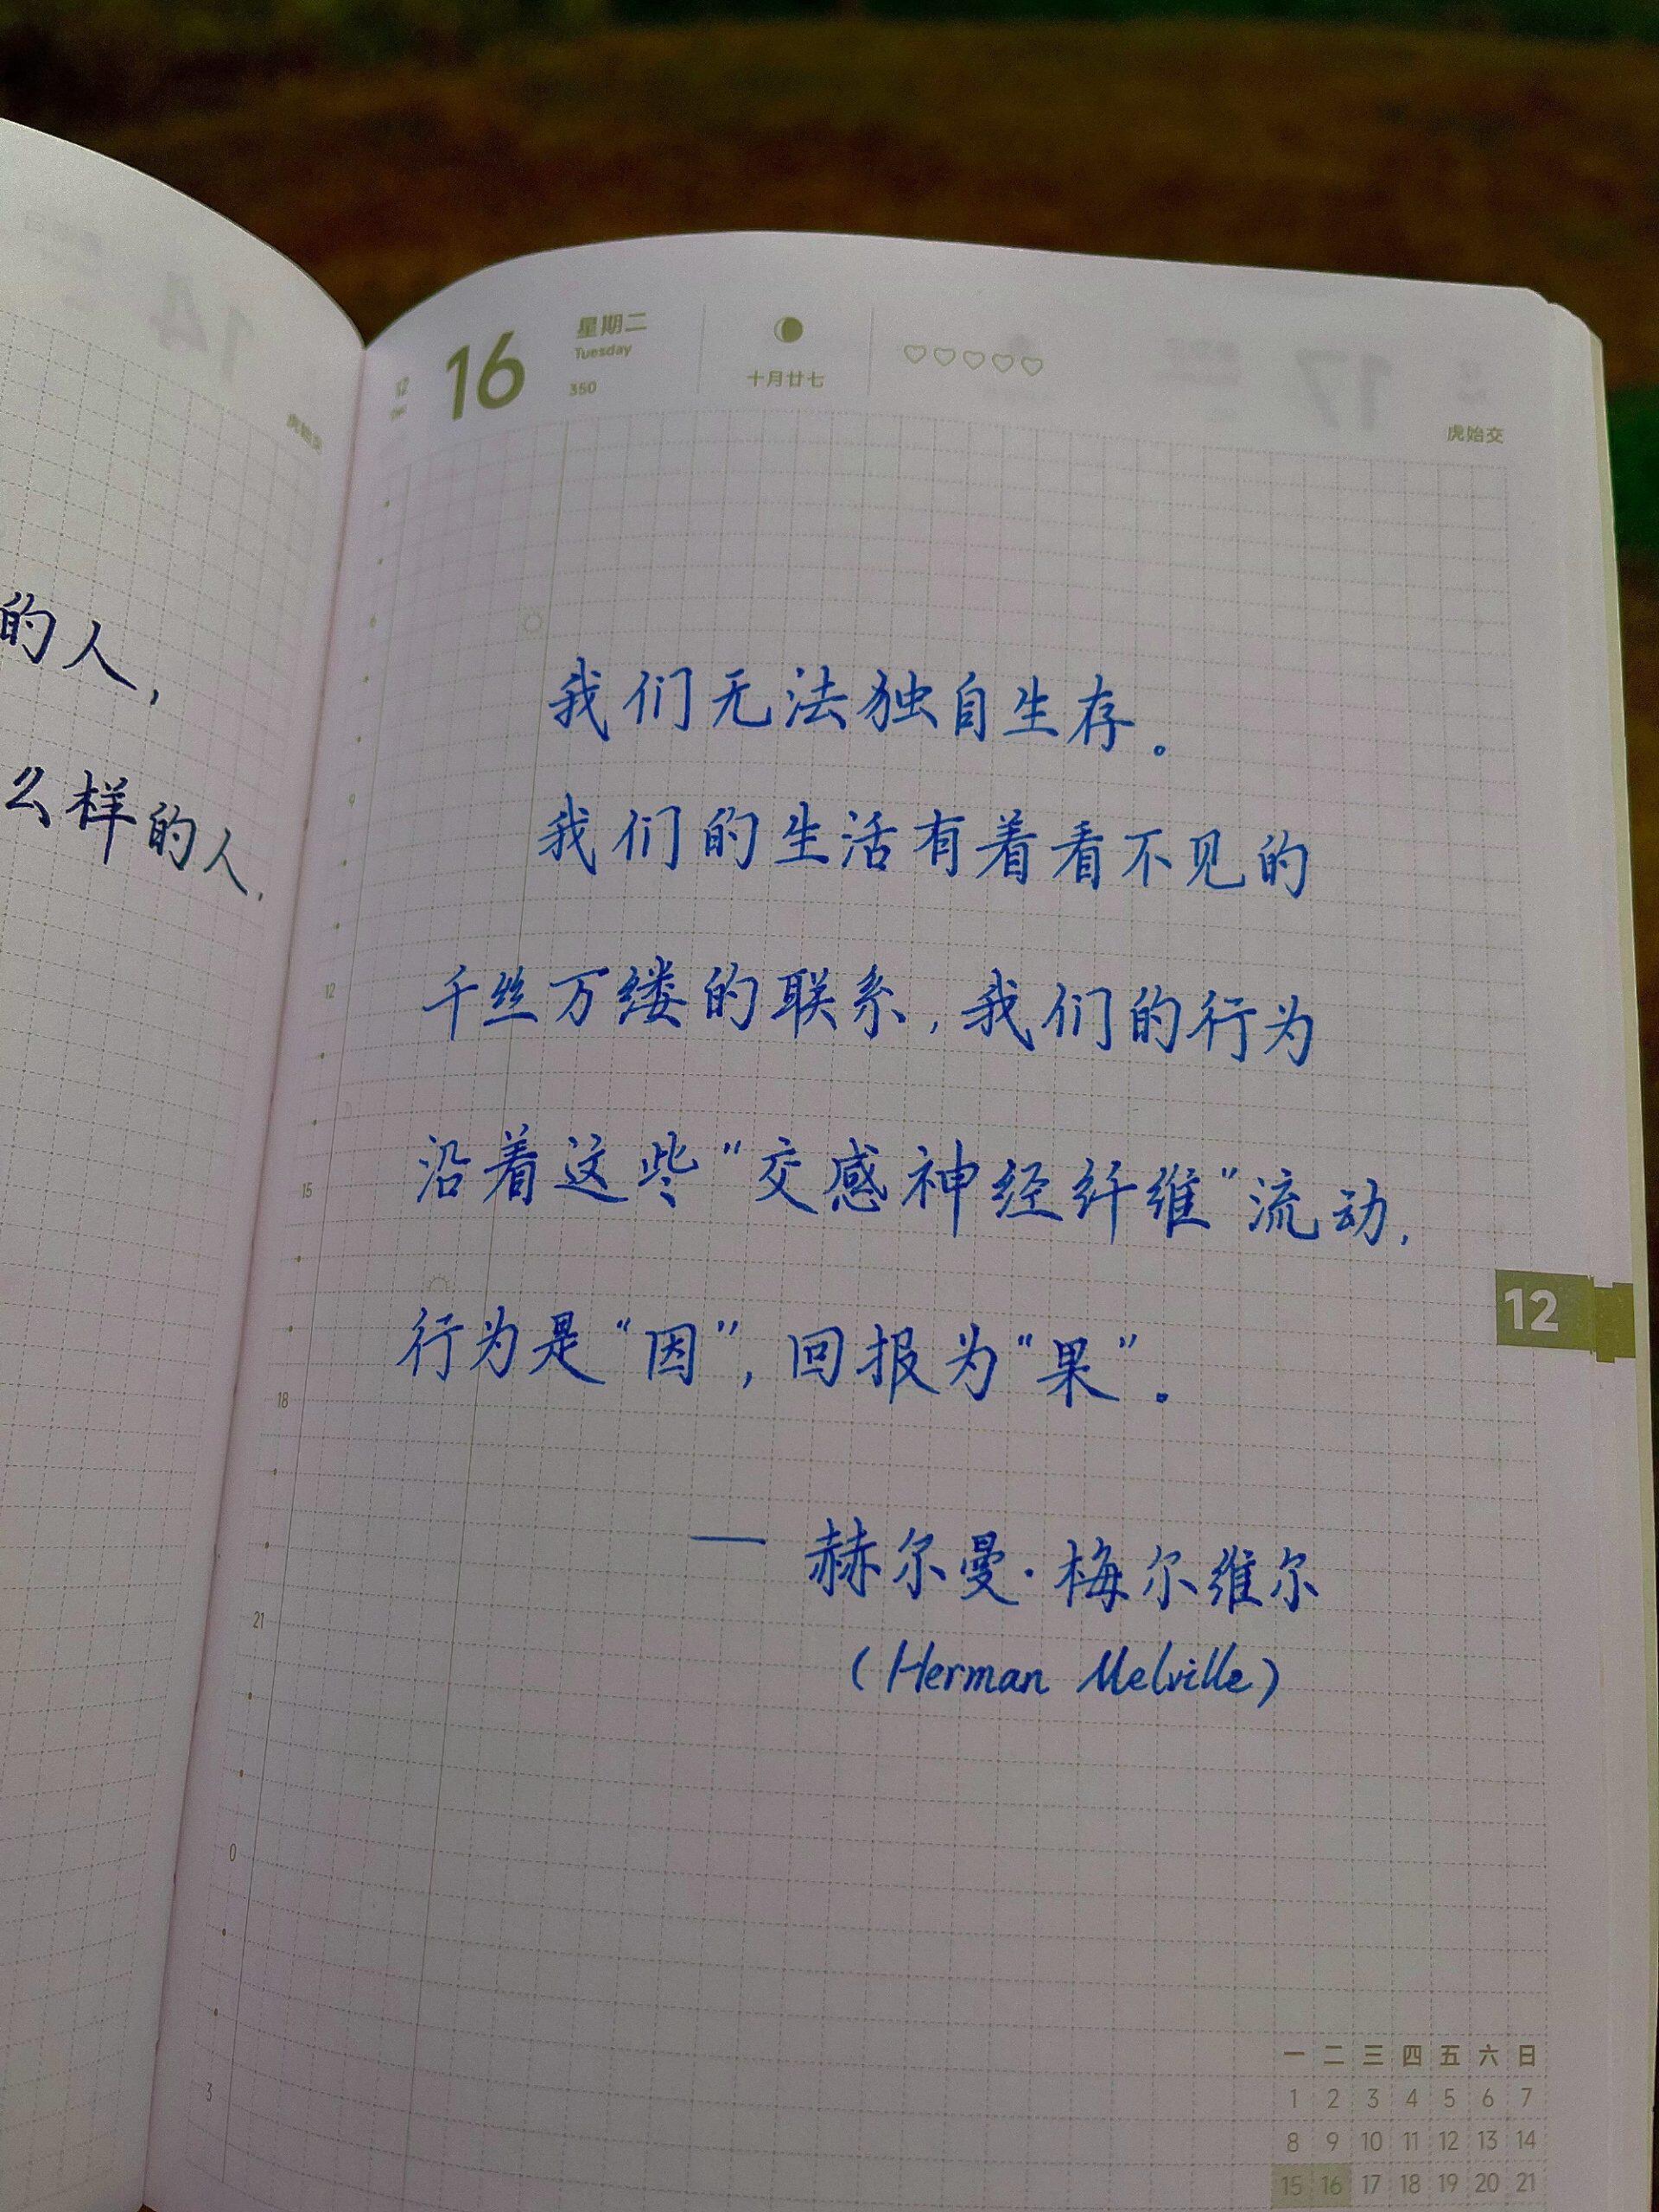 的人，
么样的人.
12
16
星期二
Tuesday
350
十月廿七
虎始交
我们无法独自生存。
我们的生活有着看不见的
千丝万缕的联系，我们的行为
沿着这些“交感神经纤维”流动，
行为是“因”，回报为“果”。
— 赫尔曼·梅尔维尔
(Herman Melville)
9
12
15
18
21
0
3
12
一 二 三 四 五 六 日
1 2 3 4 5 6 7
8 9 10 11 12 13 14
15 16 17 18 19 20 21